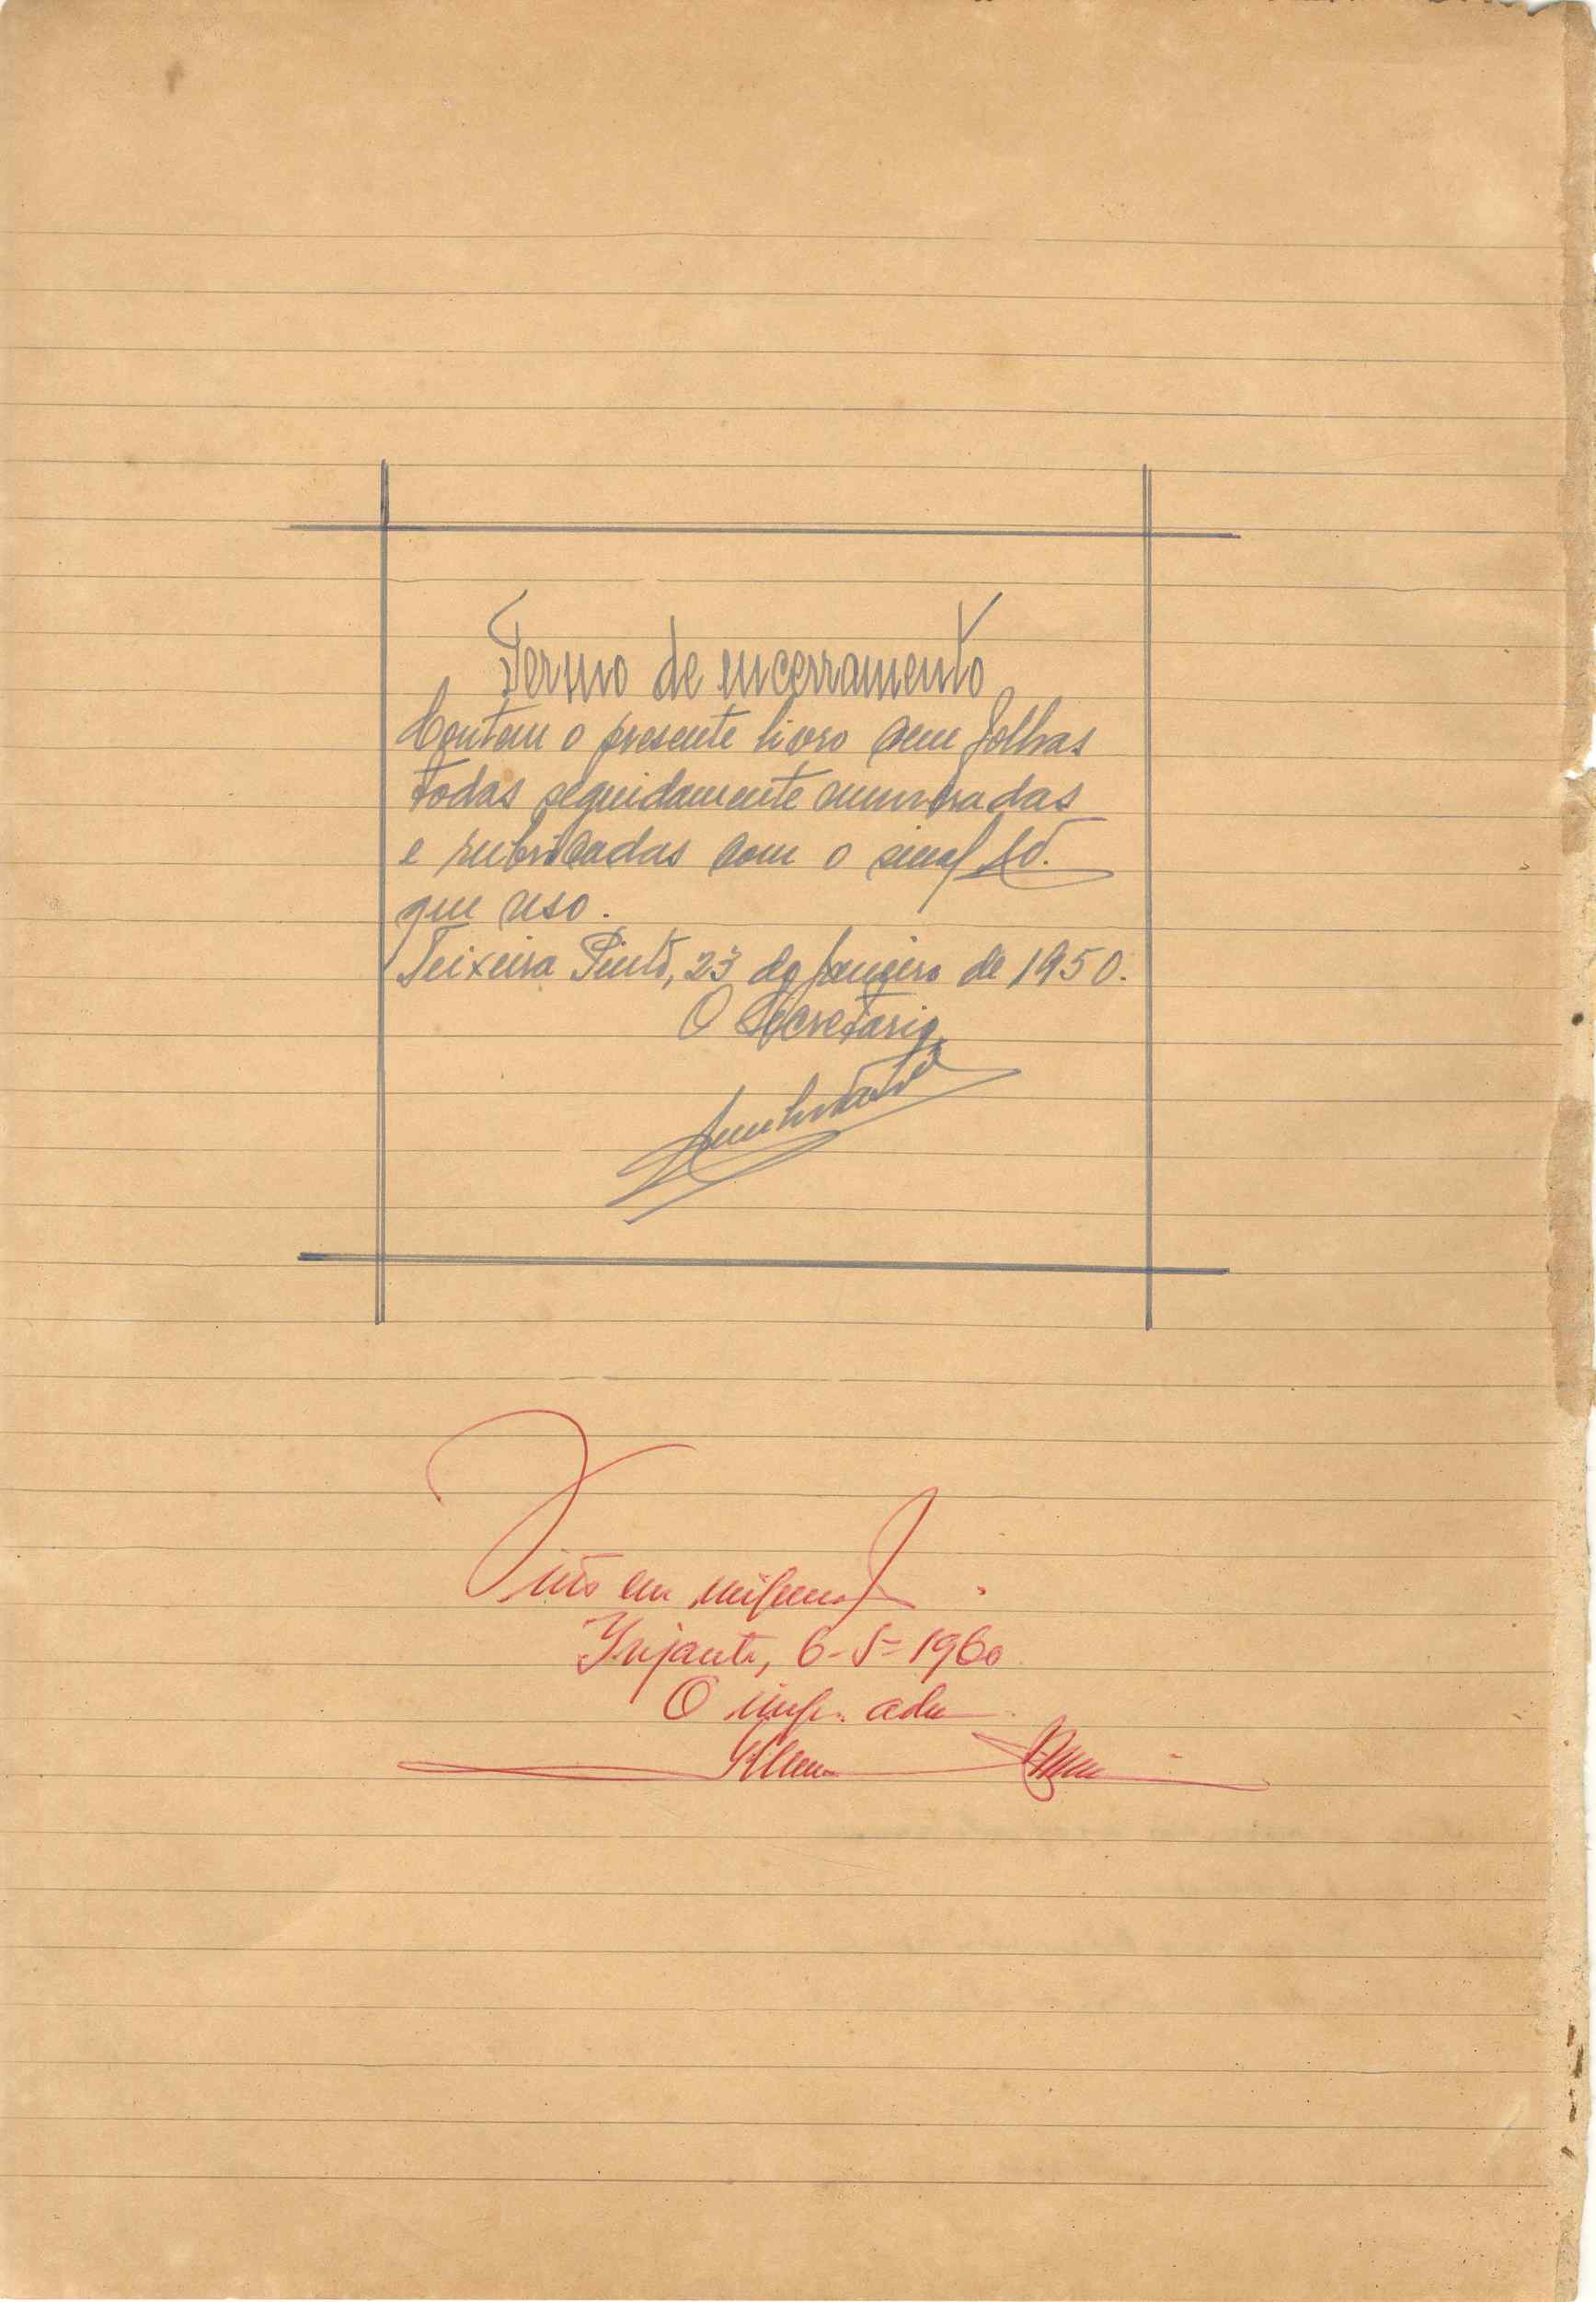 Termo de encerramento
Contem o presente livro cem folhas
todas seguidamente numeradas
e rubricadas com o sinal
que uso.
Teixeira Pinto, 23 de Janeiro de 1950.
O Secretario
Visto em
6-5-1960
O insp. adm